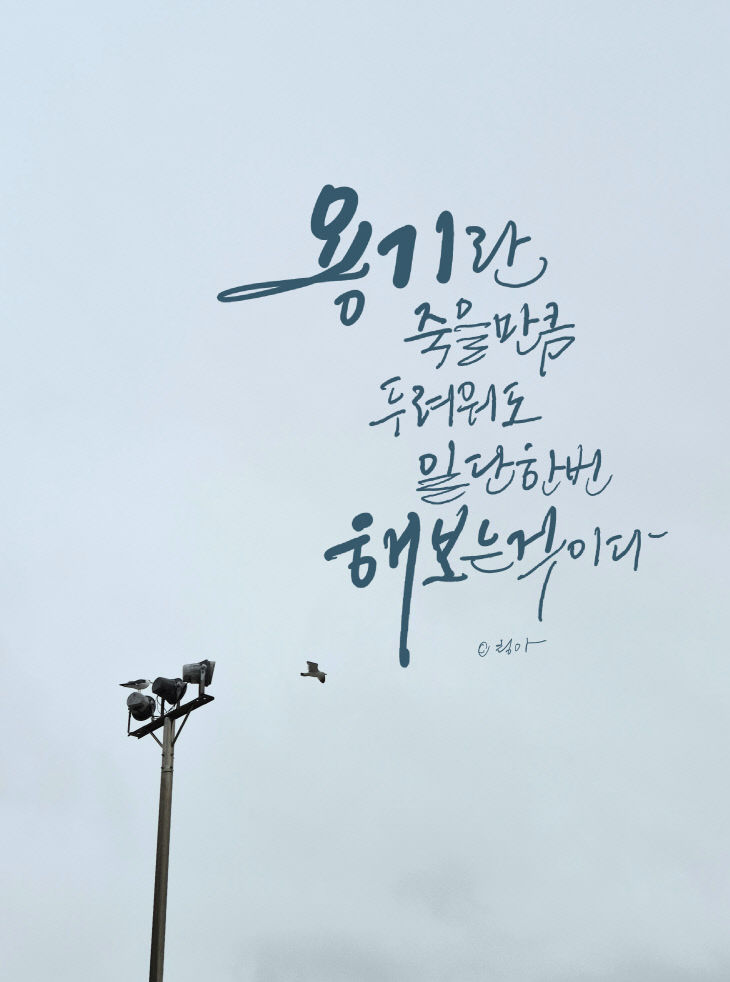 용기란
죽을만큼
두려워도
일단한번
해보는것이다